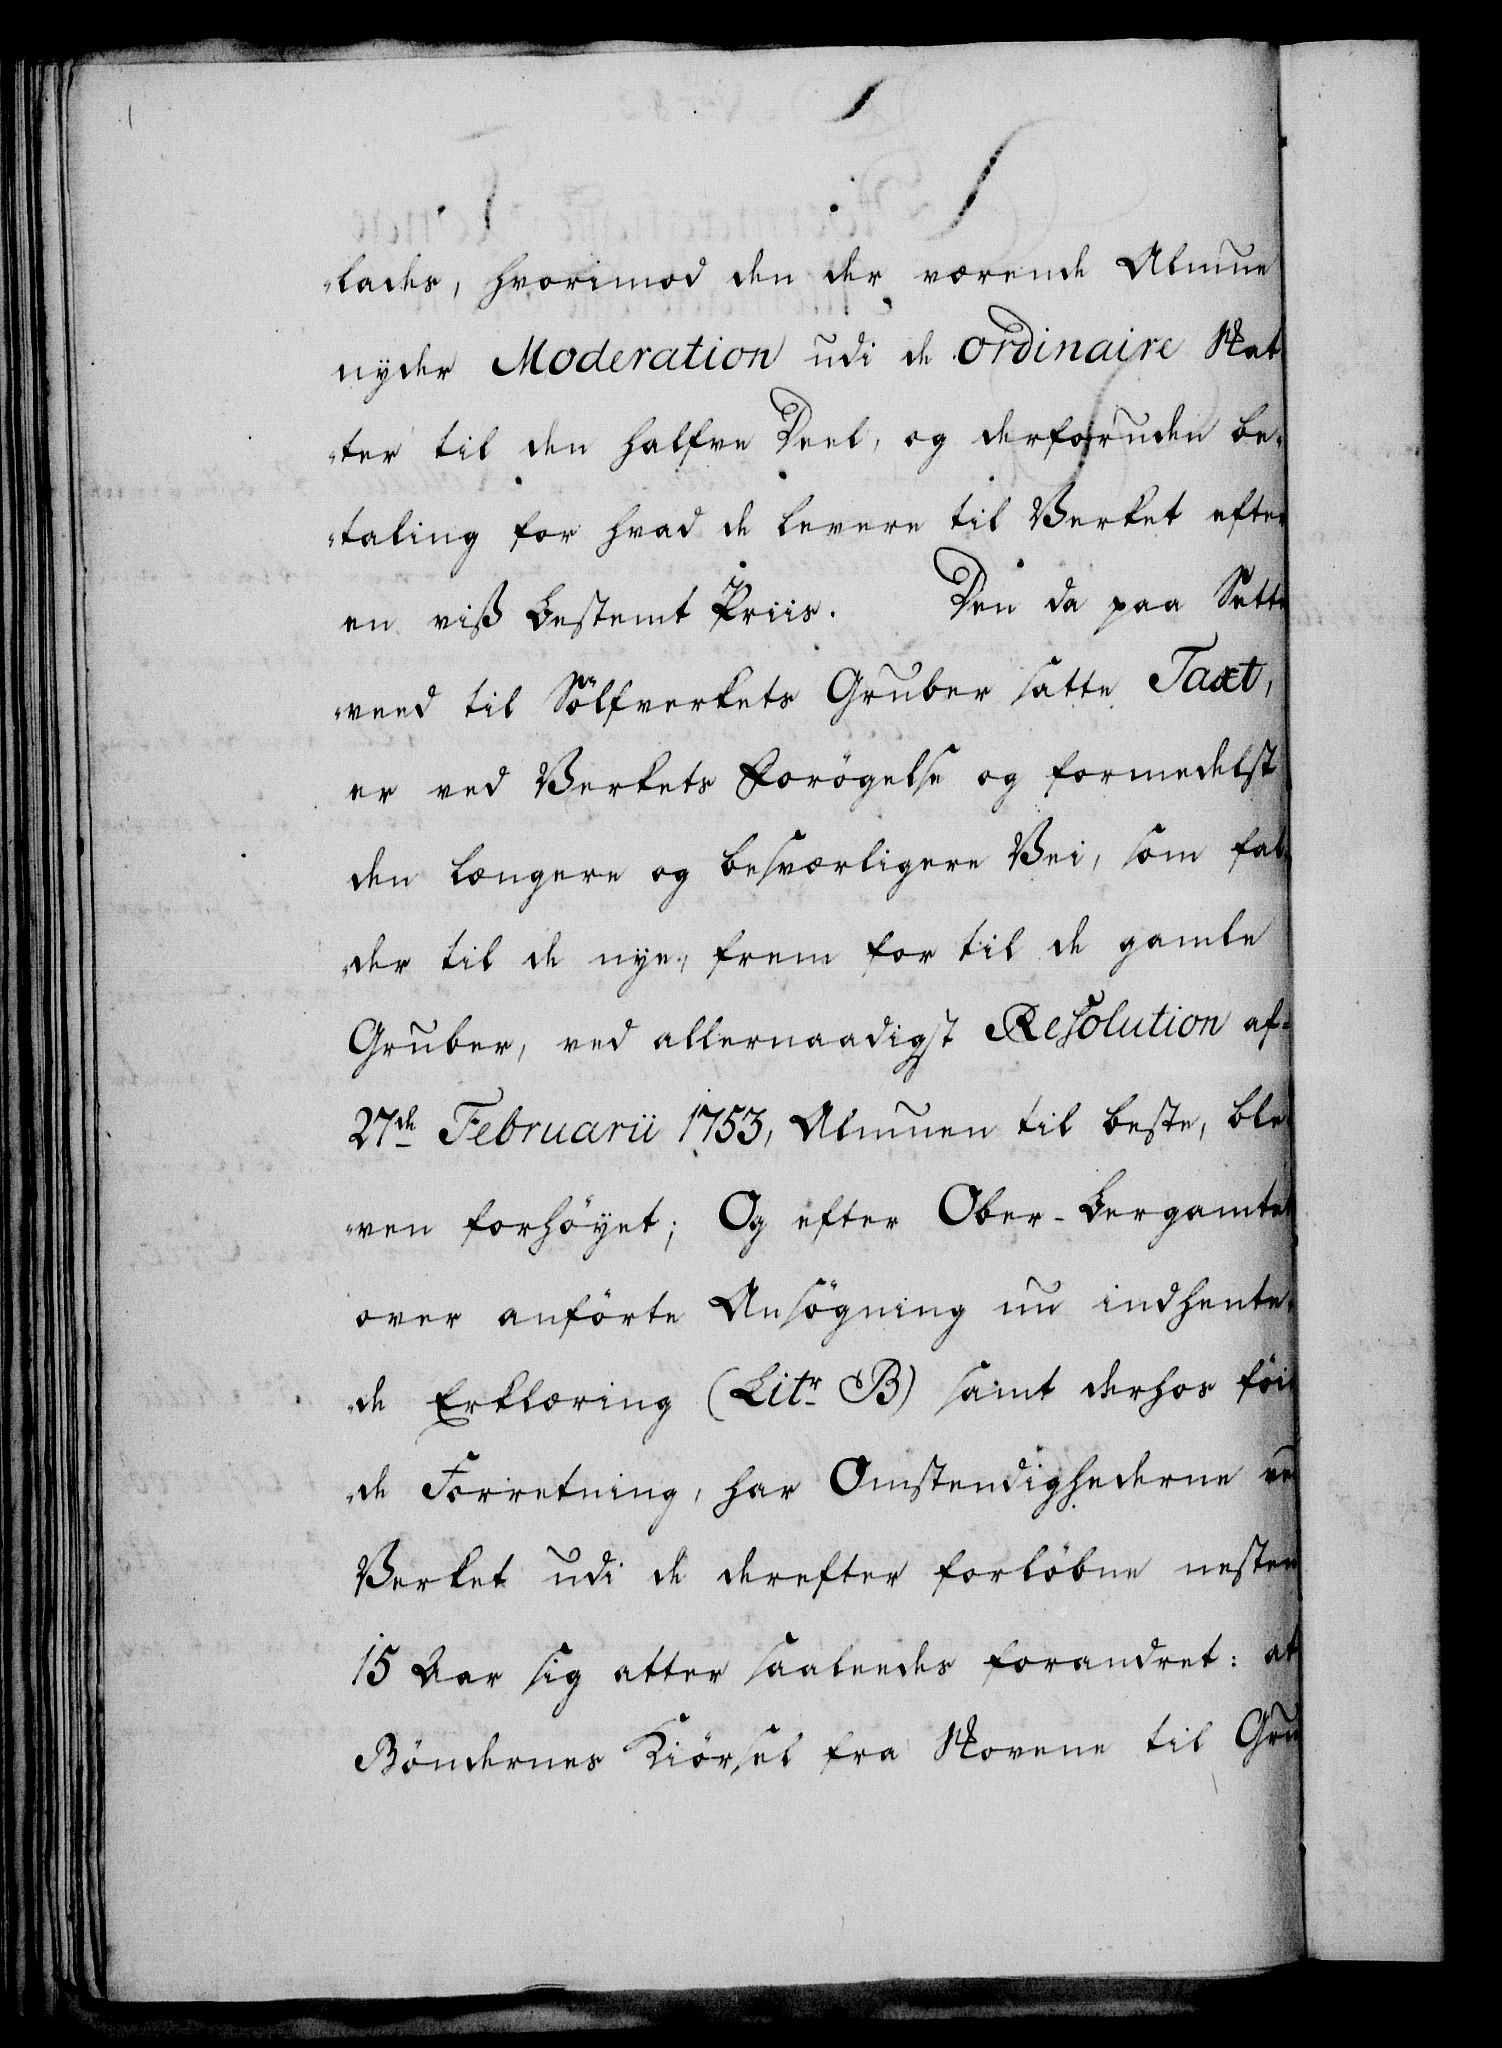 „lades, hvorimod den der værende Almue
nyder Moderation udi de ordinaire Skat
„ter til den halfve Deel, og derforuden be„
„taling for hvad de levere til Verket efter
en viß bestemt Priis. Den da paa Sette
„veed til Sölfverkets Gruber satte Taxt,
er ved Verkets Forögelse og formedelst
den længere og besværligere Vei, som fal„
„der til de nye, frem for til de gamle
Gruber, ved allernaadigst Resolution af
27de Februarii 1753, Almuen til beste, ble
„ven forhöyet; Og efter Ober-Bergamtet
over anförte Ansögning nu indhente„
„de Erklæring (Litr B) samt derhos föi
„de Forretning, har Omstendighederne ve
Verket udi de derefter forlöbne nesten
15 Aar sig atter saaleedes forandret: at
Böndernes Kiörsel fra Skovene til Gru